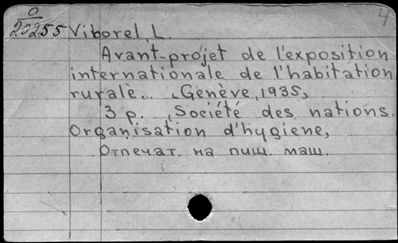 4
O
20255 Viborel, L.
Avant-projet de l'exposition
internationale de l'habitation
rurale... Genève, 1935,
3 p. , Société des nations.
Organisation d'hygiene,
Отпечат. на пиш. маш.